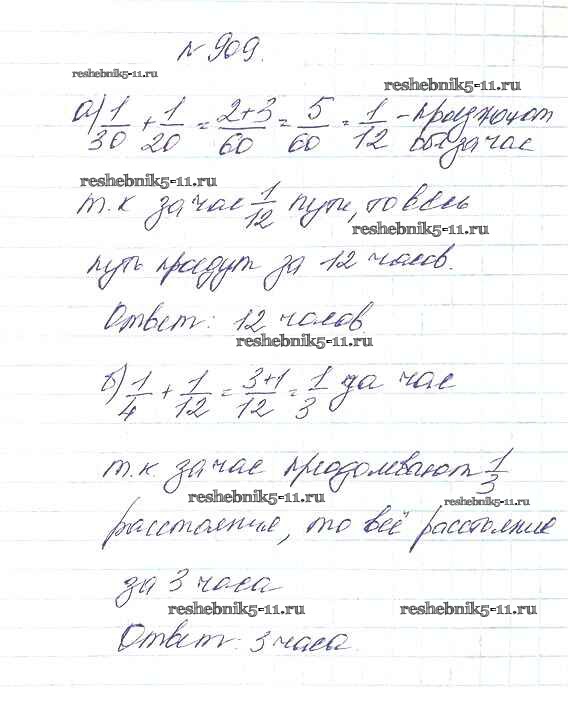 № 909.
reshebnik5-11.ru
reshebnik5-11.ru
а) 1/30 + 1/20 = 2+3/60 = 5/60 = 1/12 -
бы за час
reshebnik5-11.ru
т.к за час 1/12 пути, то весь
reshebnik5-11.ru
путь пройдут за 12 часов.
Ответ: 12 часов.
reshebnik5-11.ru
б) 1/4 + 1/12 = 3+1/12 = 1/3 за час
т.к за час преодолевают 1/3
reshebnik5-11.ru
reshebnik5-11.ru
расстояния, то всё расстояние
за 3 часа
reshebnik5-11.ru
reshebnik5-11.ru
Ответ: 3 часа.